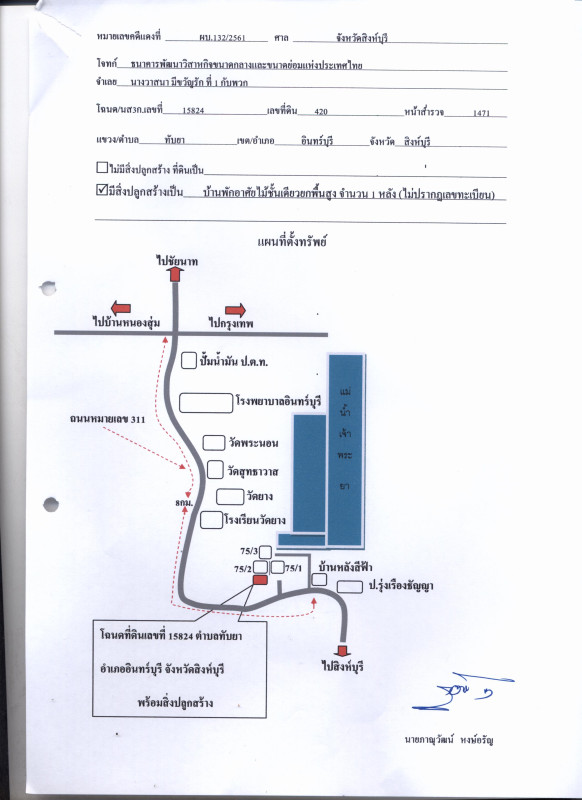 หมายเลขคดีแดงที่ ผบ.132/2561 ศาล จังหวัดสิงห์บุรี
โจทก์ ธนาคารพัฒนาวิสาหกิจขนาดกลางและขนาดย่อมแห่งประเทศไทย
จำเลย นางวาสนา มีขวัญรัก ที่ 1 กับพวก
โฉนด/นส3ก.เลขที่ 15824 เลขที่ดิน 420 หน้าสำรวจ 1471
แขวง/ตำบล ทับยา เขต/อำเภอ อินทร์บุรี จังหวัด สิงห์บุรี
ไม่มีสิ่งปลูกสร้าง ที่ดินเป็น
มีสิ่งปลูกสร้างเป็น บ้านพักอาศัยไม้ชั้นเดียวยกพื้นสูง จำนวน 1 หลัง (ไม่ปรากฏเลขทะเบียน)
แผนที่ตั้งทรัพย์
ไปชัยนาท
ไปบ้านหนองสุ่ม
ไปกรุงเทพ
ปั๊มน้ำมัน ป.ต.ท.
โรงพยาบาลอินทร์บุรี
แม่น้ำเจ้าพระยา
ถนนหมายเลข 311
วัดพระนอน
วัดสุทธาวาส
วัดยาง
8กม.
โรงเรียนวัดยาง
75/3
75/2
75/1
บ้านหลังสีฟ้า
ป.รุ่งเรืองธัญญา
โฉนดที่ดินเลขที่ 15824 ตำบลทับยา
อำเภออินทร์บุรี จังหวัดสิงห์บุรี
พร้อมสิ่งปลูกสร้าง
ไปสิงห์บุรี
นายภาณุวัฒน์ หงษ์อรัญ